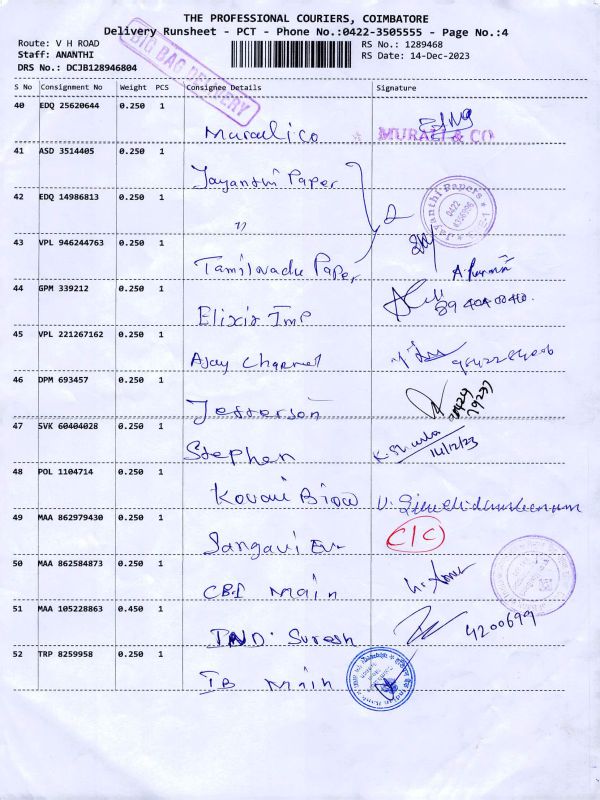 THE PROFESSIONAL COURIERS, COIMBATORE
Delivery Runsheet - PCT - Phone No.:0422-3505555 - Page No.:4
Route: V H ROAD
RS No.: 1289468
Staff: ANANTHI
RS Date: 14-Dec-2023
DRS No.: DCJB128946804
BIG BAG DELIVERY
S No Consignment No Weight PCS Consignee Details Signature
40 EDQ 25620644 0.250 1
Murali co
MURALI & CO
41 ASD 3514405 0.250 1
Jayanthi Paper
42 EDQ 14986813 0.250 1
"
2
Jayanthi Papers
0422
43 VPL 946244763 0.250 1
Tamilnadu Paper
44 GPM 339212 0.250 1
Elixir Imp
45 VPL 221267162 0.250 1
Ajay Channel
46 DPM 693457 0.250 1
Jefferson
47 SVK 60404028 0.250 1
Stephen
14/12/23
48 POL 1104714 0.250 1
Kovai
49 MAA 862979430 0.250 1
Sangavi
C/C
50 MAA 862584873 0.250 1
CBI Main
51 MAA 105228863 0.450 1
IND. Suresh
4200699
52 TRP 8259958 0.250 1
IB Main
Indian Bank